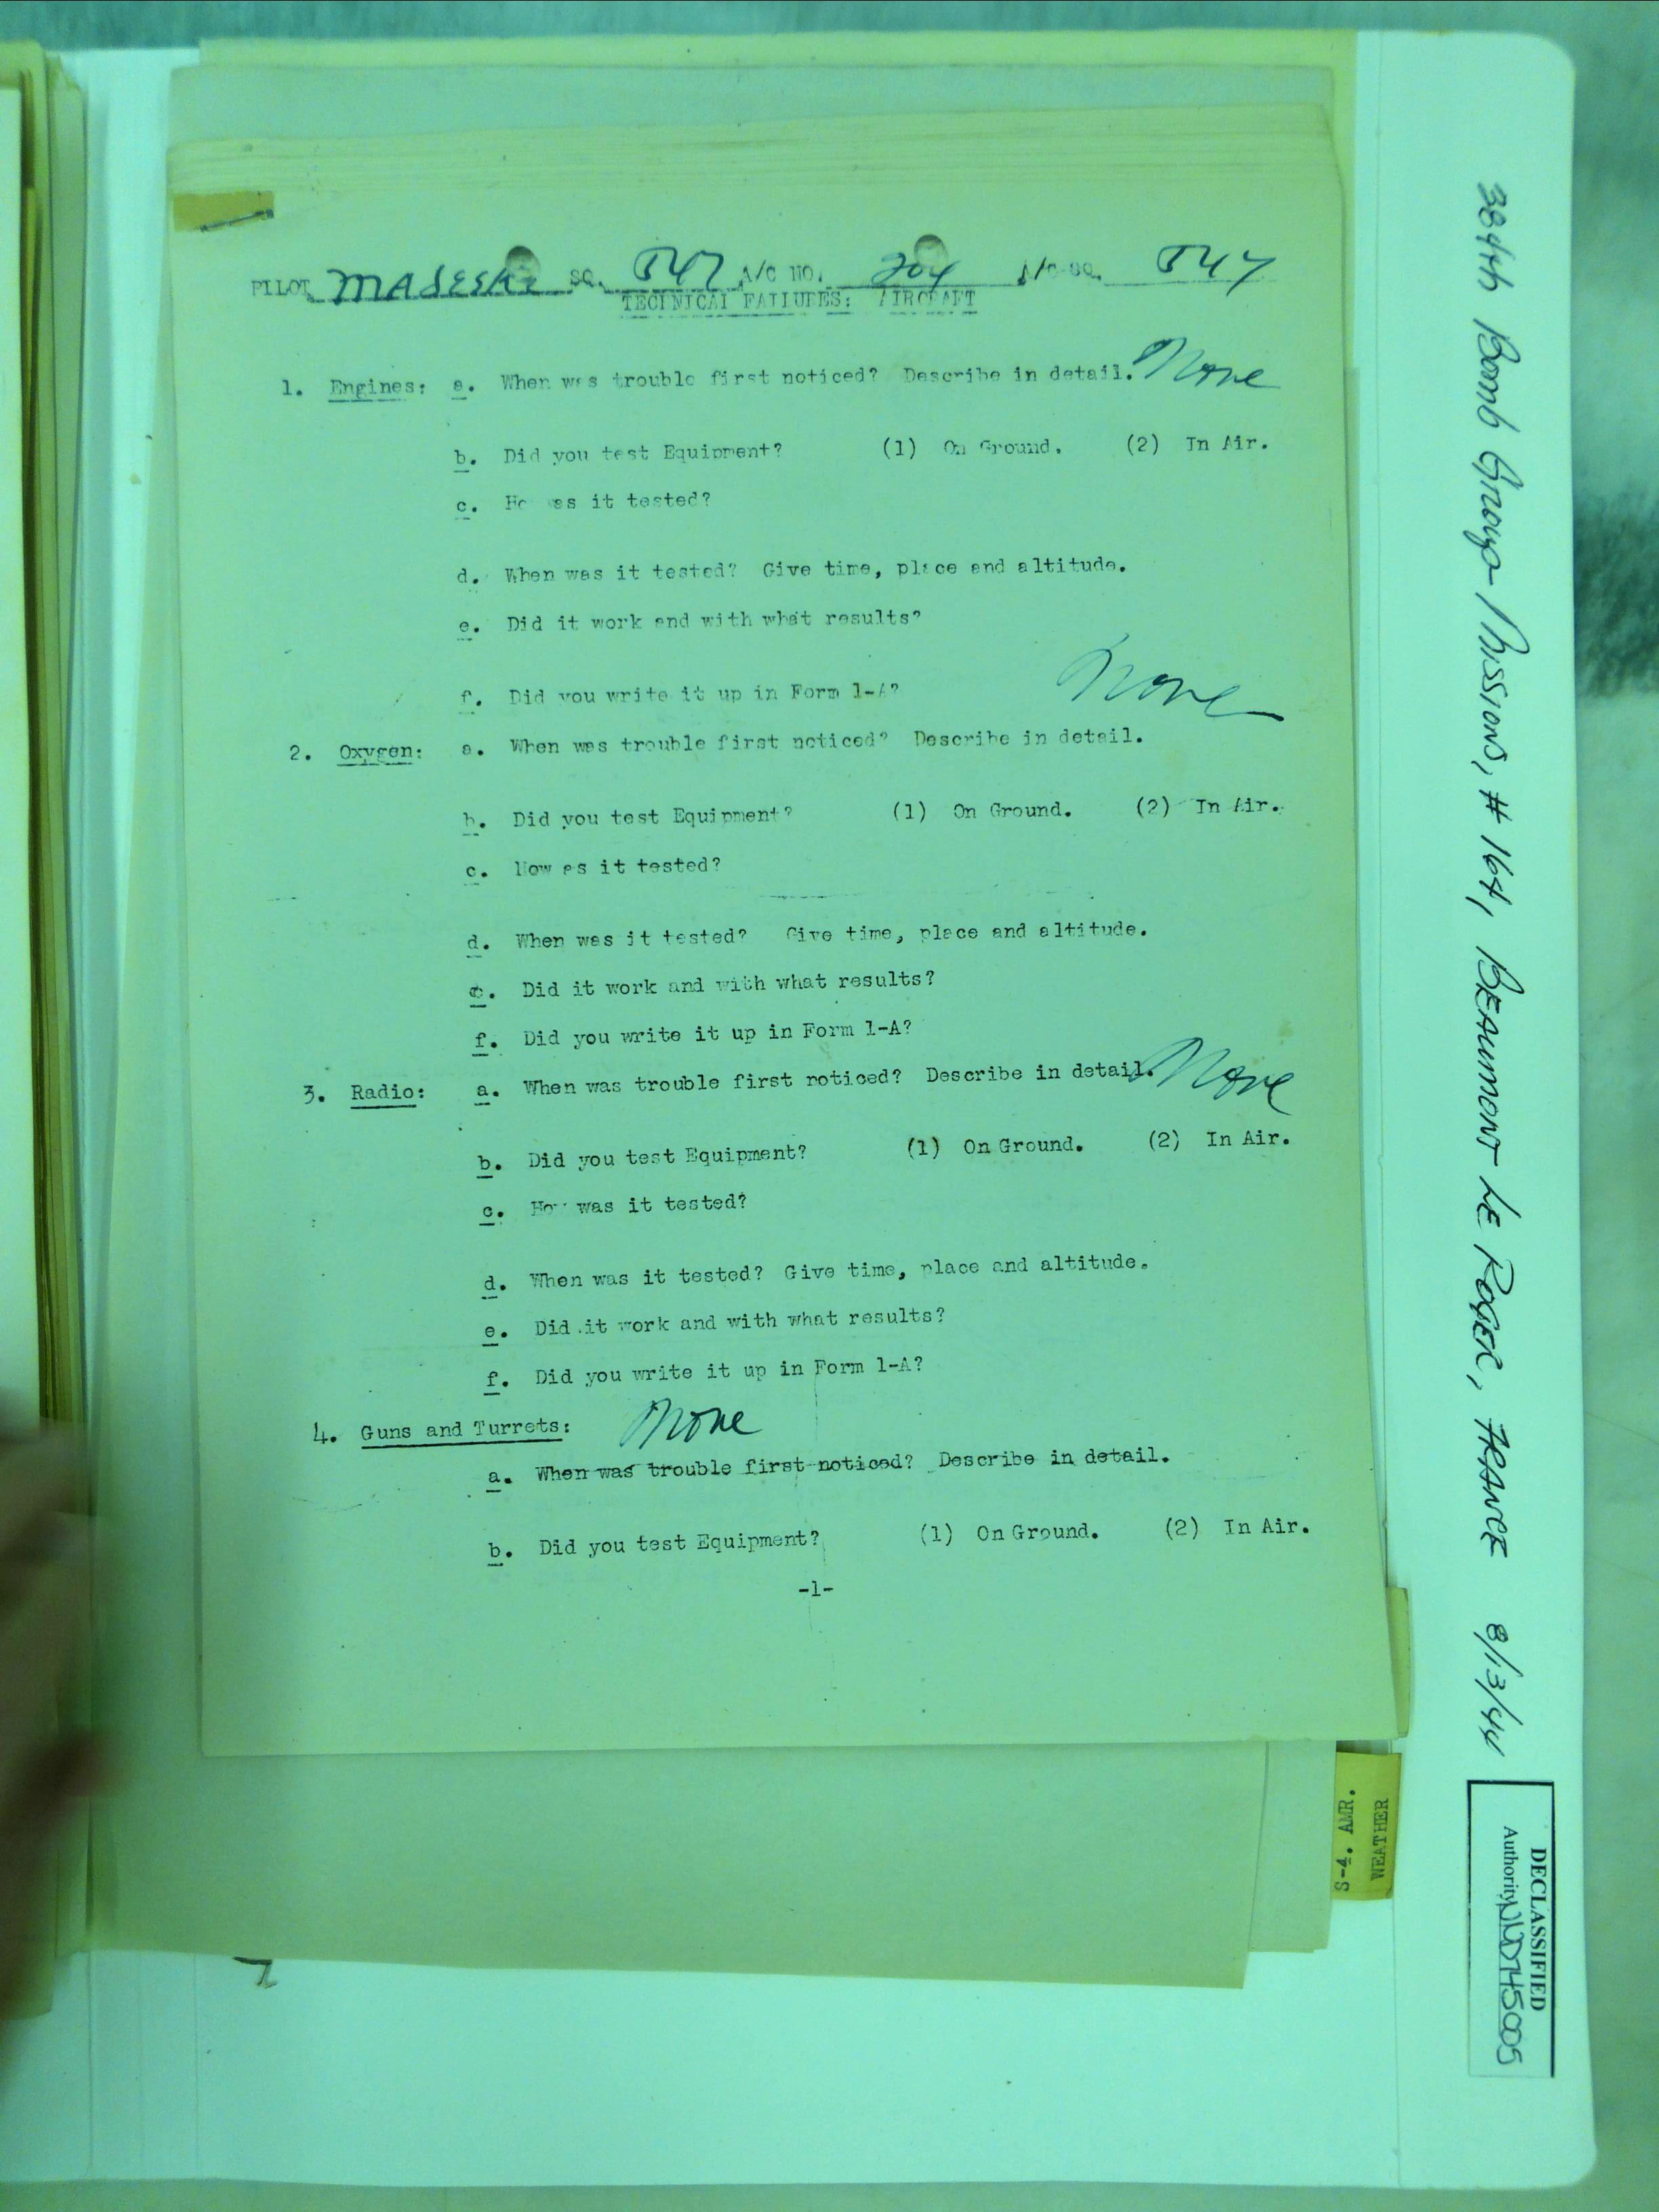 PILOT MADESKI SQ. 547 A/C NO. 204 A/C SQ. 547
TECHNICAL FAILURES: AIRCRAFT
1. Engines: a. When was trouble first noticed? Describe in detail. None
b. Did you test Equipment? (1) On Ground. (2) In Air.
c. How was it tested?
d. When was it tested? Give time, place and altitude.
e. Did it work and with what results?
f. Did you write it up in Form 1-A? None
2. Oxygen: a. When was trouble first noticed? Describe in detail.
b. Did you test Equipment? (1) On Ground. (2) In Air.
c. How as it tested?
d. When was it tested? Give time, place and altitude.
e. Did it work and with what results?
f. Did you write it up in Form 1-A?
3. Radio: a. When was trouble first noticed? Describe in detail. None
b. Did you test Equipment? (1) On Ground. (2) In Air.
c. How was it tested?
d. When was it tested? Give time, place and altitude.
e. Did it work and with what results?
f. Did you write it up in Form 1-A?
4. Guns and Turrets: None
a. When was trouble first noticed? Describe in detail.
b. Did you test Equipment? (1) On Ground. (2) In Air.
-1-
S-4. AMR.
WEATHER
384th Bomb Group Missions, # 164, BEAUMONT LE ROGER, FRANCE 8/13/44
DECLASSIFIED
Authority NND745005